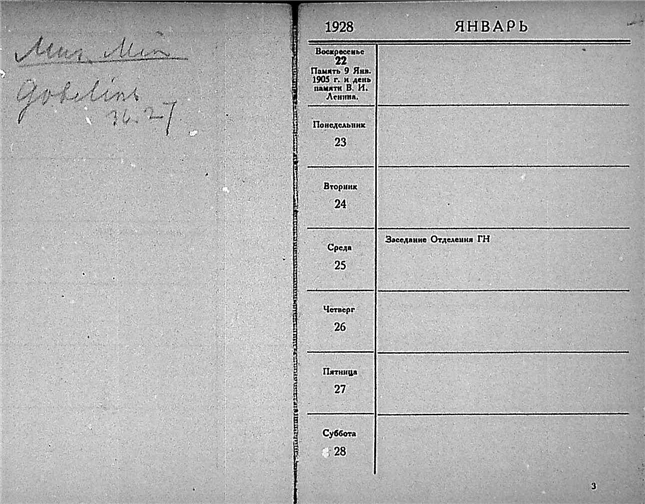 Mus. Min
Gobelins
36.27
1928 ЯНВАРЬ
Воскресенье
22
Память 9 Янв.
1905 г. и день
памяти В. И.
Ленина.
Понедельник
23
Вторник
24
Среда
25
Заседание Отделения ГН
Четверг
26
Пятница
27
Суббота
28
3